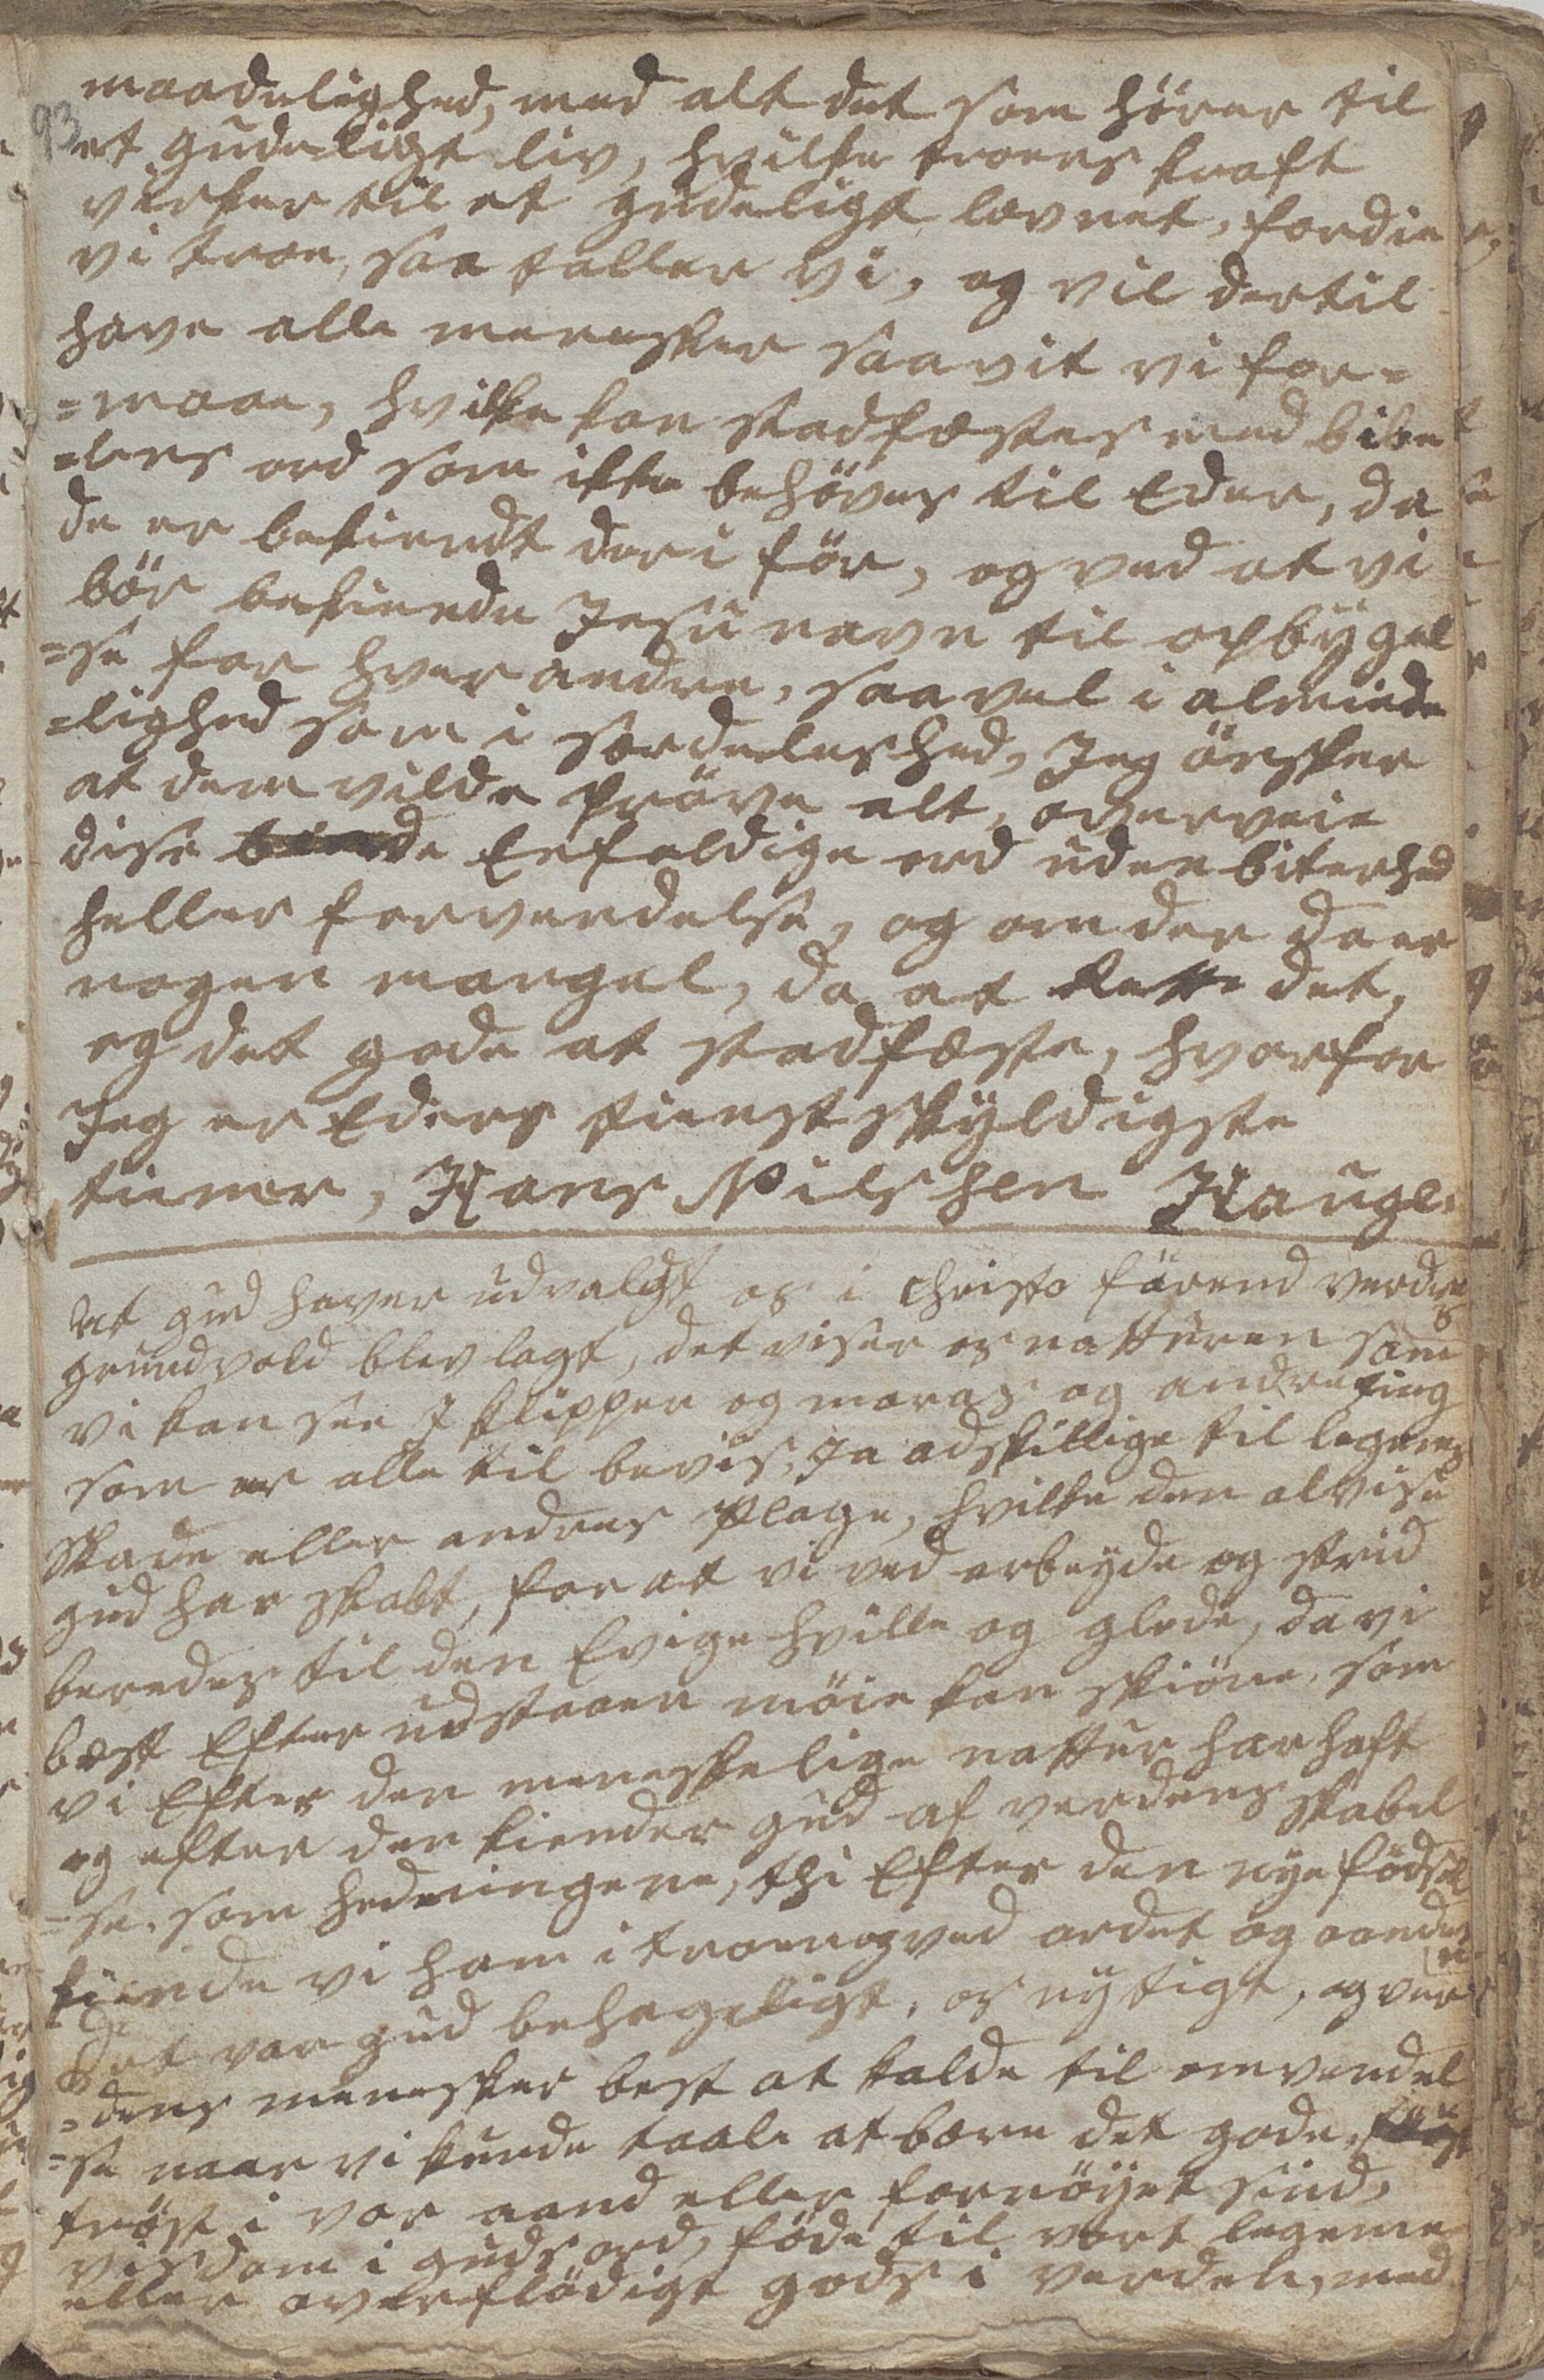 93
maadelighed, med alt det som hörer til
et gudeligt liv, hvilke troens kraft
virker til et gudeligt lævnet, fordie
vi troe, saa taller vi, og vil dertil
have alle menesker saavit vi for=
=maae, hvilke kan stadfæstes med bibe
=lens ord som ikke behöves til Eder, da
de er bekiendt deri för, og ved at vi
bör bekiende Jesu navn til opbÿgel
=se for hverandre, saavel i alminde
=lighed som i særdeleshed, Jeg önsker
at dem vilde pröve alt, overveie
dise Enfoldige ord uden biterhed
heller forvendelse, og om der da er
nogen mangel, da at Rette det,
og det gode at stadfæste, hvorfor
Jeg er Eders tienstskÿldigste
tiener, Hans Nilshen Hauge.
at gud haver udvalgt os i Christo förend verdens
grundvold blev lagt, det viser os natturen som
vi kan see I klipper og moras og andre ting
som er alle til beviis, Ja adskillige til legems
skade eller andens Plage, hvilke den alvise
gud har skabt, for at vi ved arbeÿde og strid
beredes til den Evige hville og glede, da vi
bæst Efter udstaaen möie kan skiöne, som
vi Efter den meneskelige nattur har haft
og efter den kiender gud af verdens skabel
=se, som hedningene, thi Efter den nye födsel
kiende vi ham i troen og ved ordet og aanden
Det var gud behageligt, os nÿtigt, og ver
=dens menesker best at kalde til omvendel
=se naar vi kunde taale at bære det gode,
tröst i vor aand eller fornöyet sind,
visdom i guds ord, föde til vort legeme
eller overflödigt gods i verden, med